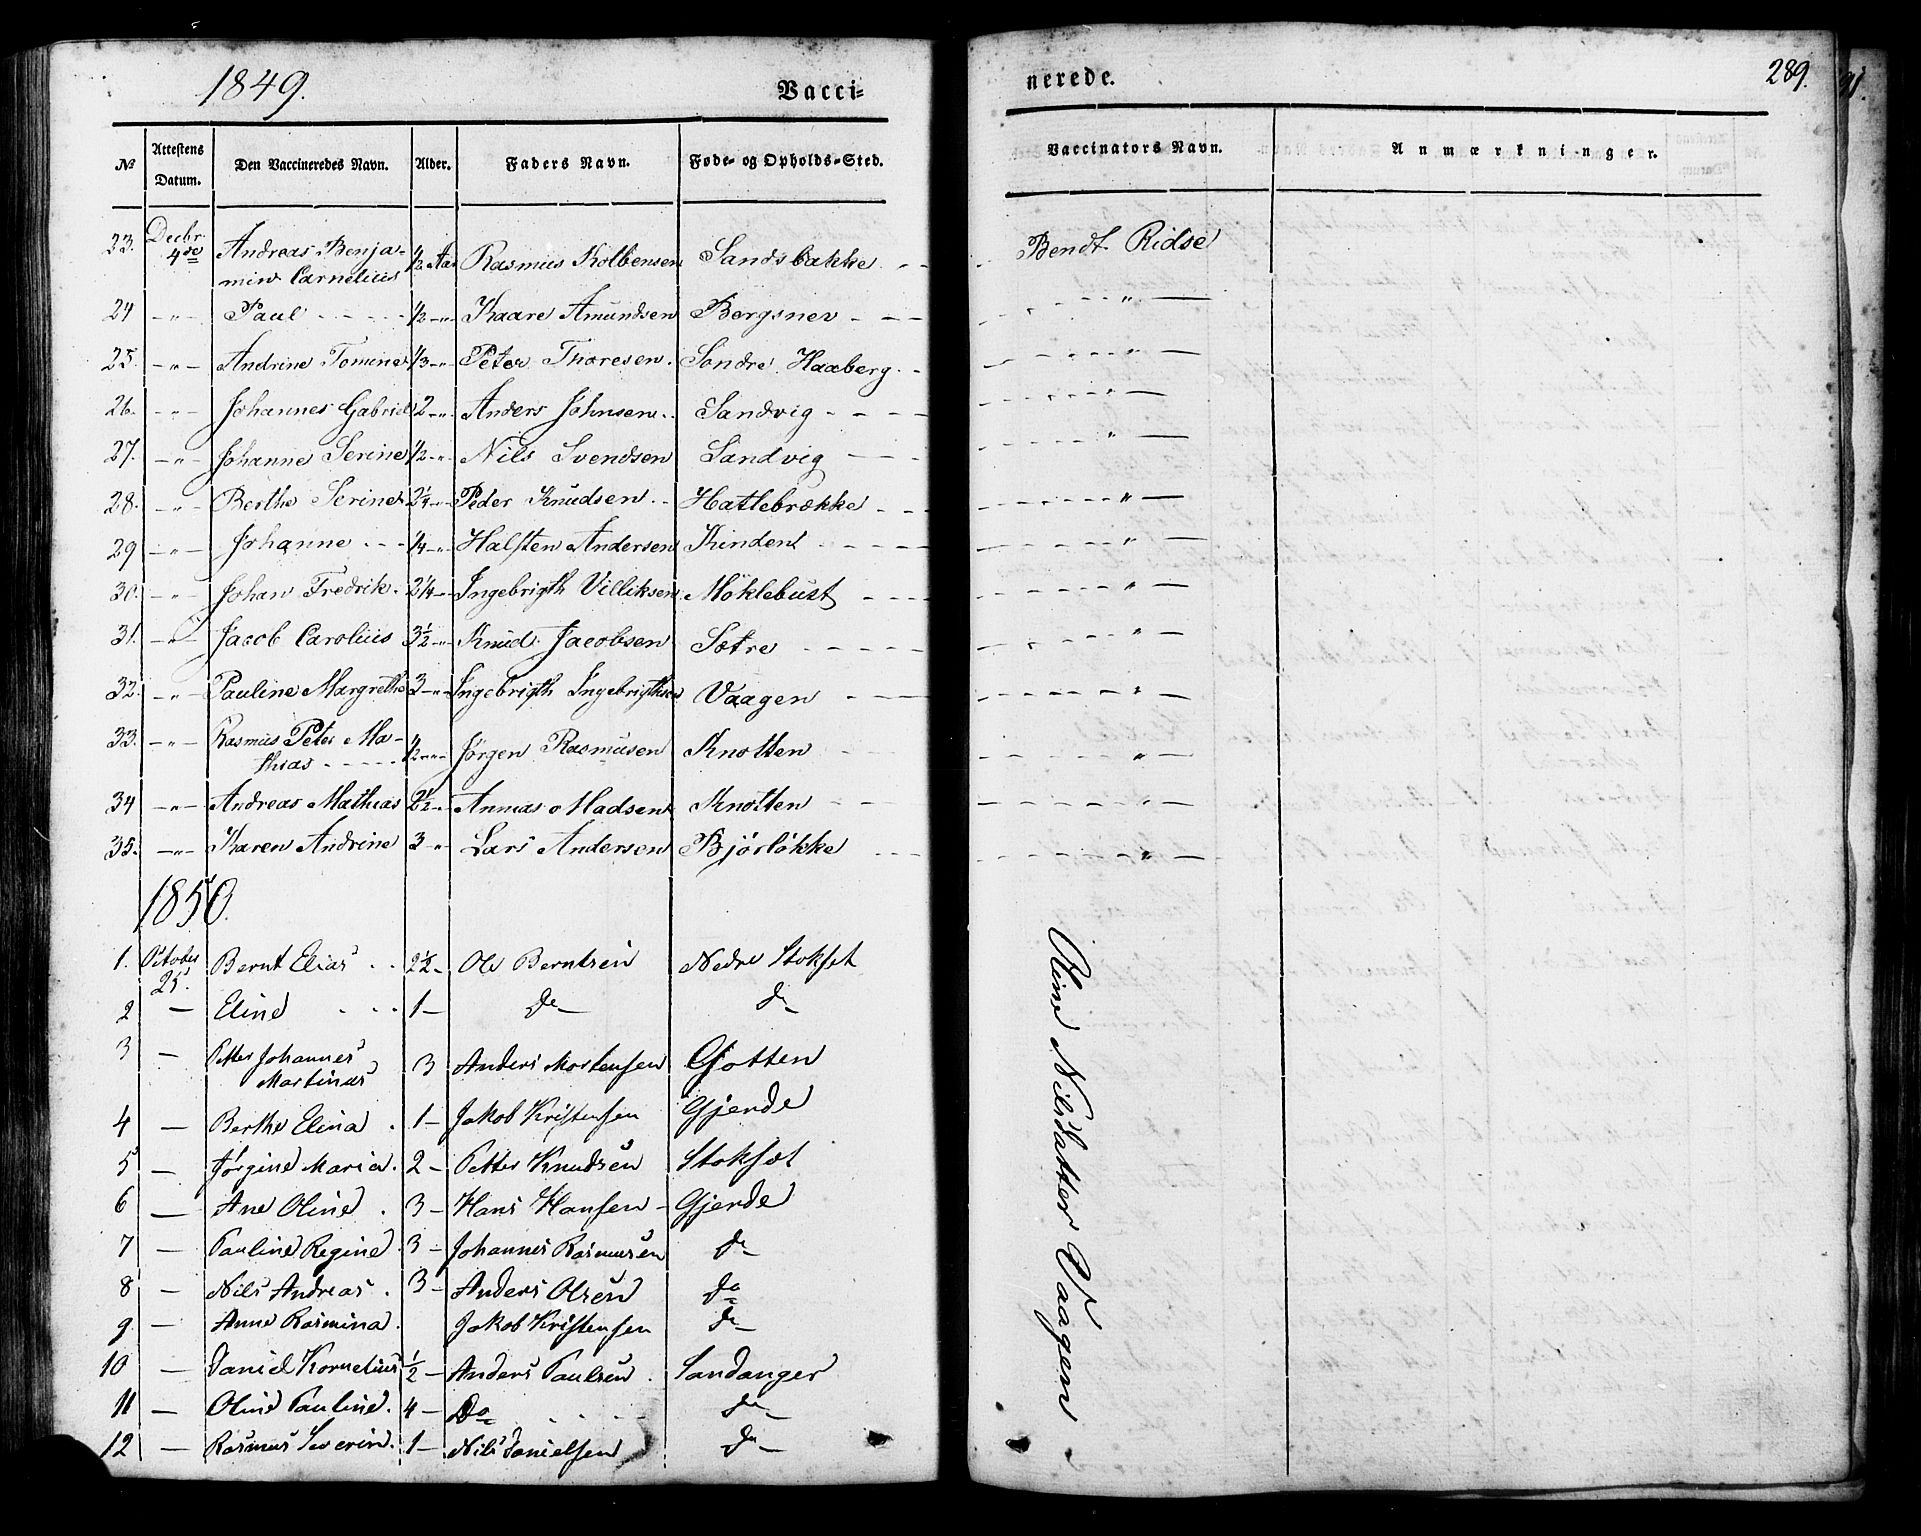 1849. Vacci= nerede. 289.
№ Attestens Datum. Den Vaccineredes Navn. Alder. Faders Navn. Føde- og Opholds-Sted. Vaccinators Navn. Anmærkninger.
23. Decbr. 4de Andreas Benja- ½ Aar Rasmus Kolbensen Sandsbakke - - Bendt Ridse
min Carnelius
24 - " - Paul - - - - ½ - " - Kaare Amundsen Bergsnev - - - - - - " -
25. - " - Andrine Tomine ⅓ - " - Peter Thoresen. Søndre Haaberg. - - - - - " -
26. - " - Johannes Gabriel 2 - " - Anders Johnsen.. Sandvig - - - - - - " -
27. - " - Johanne Serine ½ - " - Nils Svendsen Sandvig - - - - - - " -
28. - " - Berthe Serine 2¼ - " - Peder Knudsen. - Hatlebrække - - - - - - " -
29 - " - Johanne - - - ¼ - " - Halsten Andersen Kinden - - - - - - " -
30. - " - Johan Fredrik. 2¼ - " - Ingebrigth Villiksen Møklebust - - - - - - " -
31. - " - Jacob Carolius 3½ - " - Knud Jacobsen Sætre - - - - - - " -
32. - " - Pauline Margrethe 3 - " - Ingebrigth Ingebrigthsen Vaagen - - - - - - " -
33. - " - Rasmus Peter Ma- ½ - " - Jørgen Rasmusen Knotten - - - - - " -
thias - - - -
34 - " - Andreas Mathias 2½ - " - Annias Madsen Knotten - - - - - - " -
35. - " - Karen Andrine 3 - " - Lars Andersen Bjørløkke - - - - - - " -
1850.
1. October 25. Bernt Elias . . 2½ - Ole Berntsen Nedre Stokset
2 - Eline . . . 1 - Do - Do -
3 - Petter Johannes 3 Anders Mortensen Gjotten
Martinus
4 - Berthe Elina . 1 - Jakob Kristensen Gjerde
5 - Jørgine Maria. 2 - Petter Knudsen Stokset
6 - Ane Oline . 3 - Hans Hansen - Gjerde
7 - Pauline Regine. 3 - Johannes Rasmusen Do -
8 - Nils Andreas . 3 - Anders Olsen Do
9. - Anne Rasmina. Jakob Kristensen Do -
10 - Daniel Kornelius ½ - Anders Paulsen . Sandanger
11 - Oline Pauline. 4 - Do . . . Do -
12 - Rasmus Severin. 1 - Nils Danielsen Do -
Oline Nilsdatter Vaagen